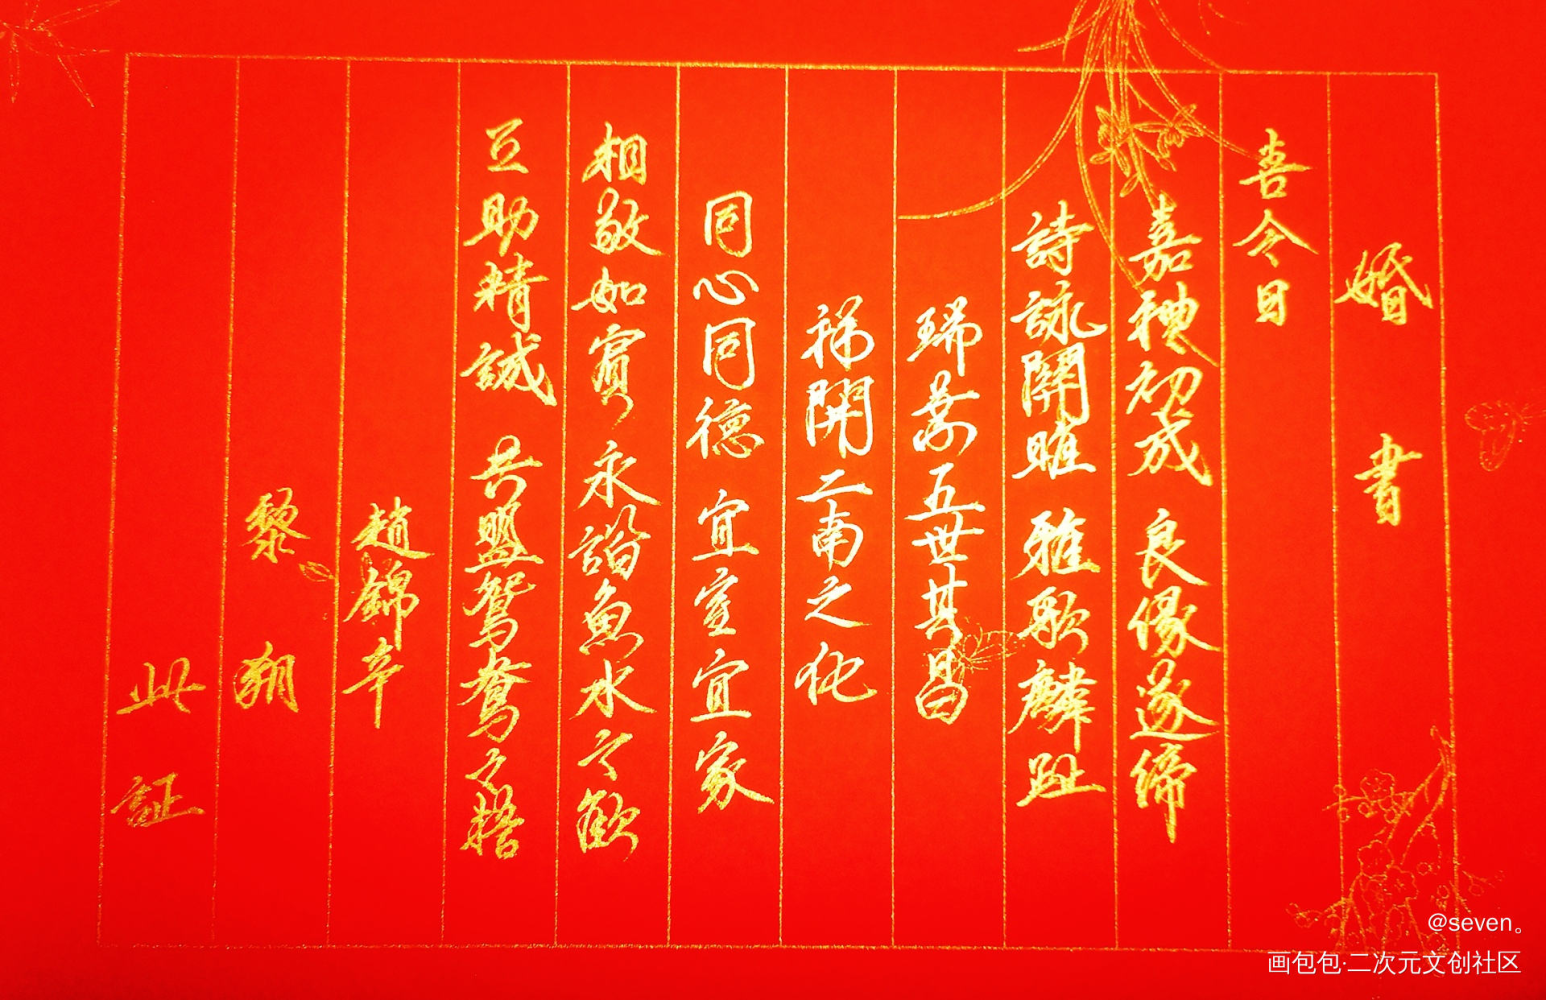 婚書
喜今日
嘉禮初成 良緣遂締
詩詠關雎 雅歌麟趾
瑞葉五世其昌
祥開二南之化
同心同德 宜室宜家
相敬如賓 永諧魚水之歡
互助精誠 共盟鴛鴦之
趙錦辛
黎朔
此証
@seven。
画包包·二次元文创社区